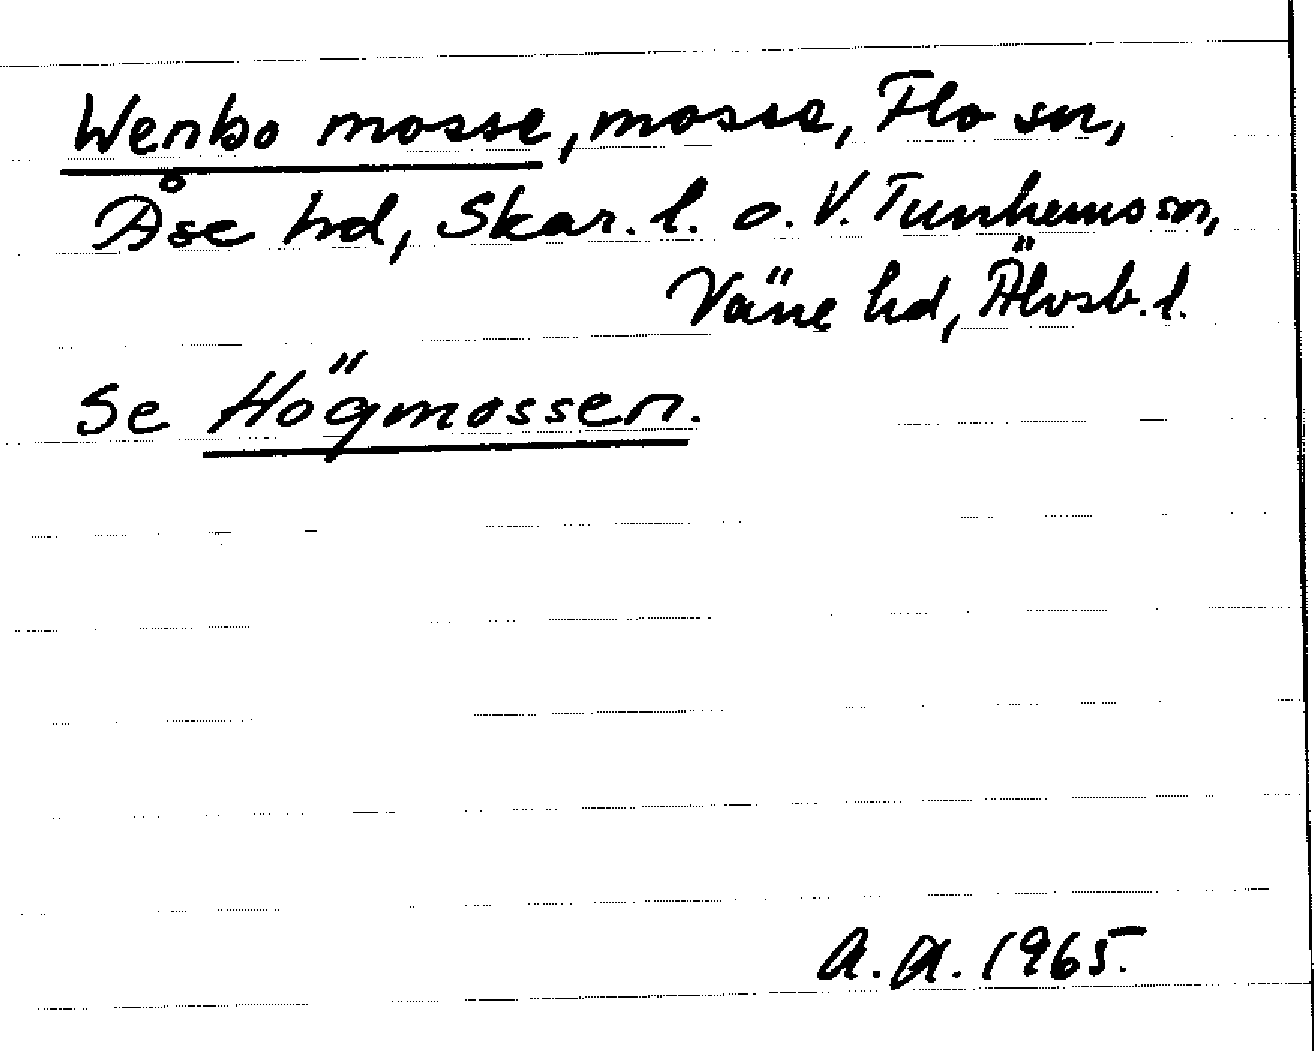 Wenbo mosse, mosse, Flo sn,
Åse hd, Skar. l. o. V. Tunhems sn,
Väne hd, Älvsb. l.
Se Högmossen.
A. A. 1965.